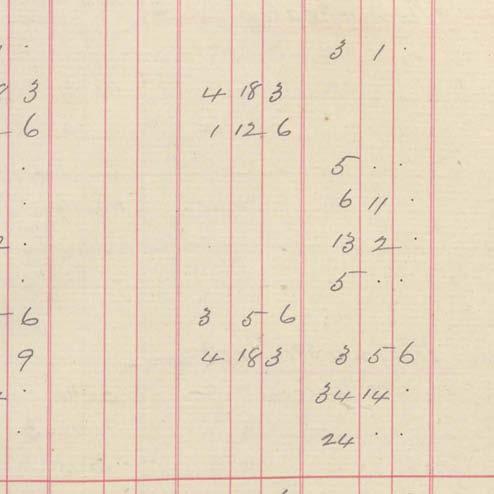 3 1 ·
3 4 18 3
6 1 12 6
· 5 · ·
· 6 11 ·
· 13 2 ·
· 5 · ·
6 3 5 6
9 4 18 3 3 5 6
· 34 14 ·
· 24 · ·